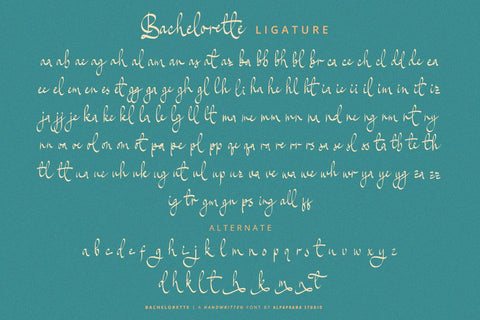 Bachelorette LIGATURE
aa ab ae ag ah al am an as at az ba bb bh bl br ca ce ch cl dd de ea
ee el em en es et gg ga ge gh gl lh li ha he hl ht ia ic ii il im in it iz
ja jj je ka ke kl la le lg ll lt ma me mm mn na nd ne ng nn nt ny
nn oa oe ol on om ot pa pe pl pp qe qa ra re rr rs sa se sl ss ta tb te th
tl tt ua ue uh uk ug ut ul up uz va ve wa we wh wr ya ye yg za zz
ig tr gm gn ps ing all
ALTERNATE
a b c d e f g h i j k l m n o p q r s t u v w x y z
d h k l t h k
BACHELORETTE | A HANDWRITTEN FONT BY ALPAPRANA STUDIO